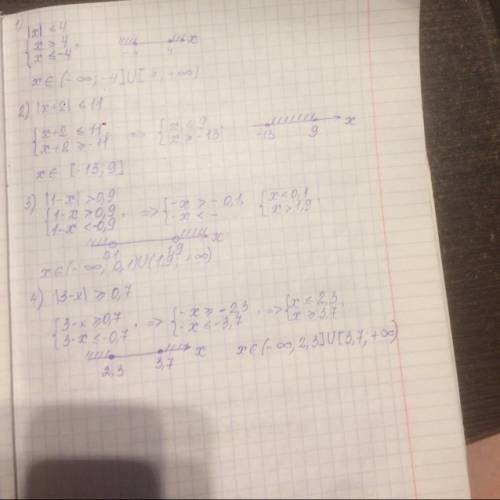 1)
|x| ≤ 4
{x ≥ 4
{x ≤ -4,
-4 4 x
x ∈ (-∞; -4] U [4; +∞)
2) |x+2| ≤ 11
{x+2 ≤ 11 => {x ≤ 9
{x+2 ≥ -11 {x ≥ -13,
-13 9 x
x ∈ [-13; 9]
3) |1-x| > 0,9
{1-x > 0,9, => {-x > -0,1, {x < 0,1
{1-x < -0,9 {-x < - {x > 1,9
0,1 1,9 x
x ∈ (-∞; 0,1) U (1,9; +∞)
4) |3-x| ≥ 0,7
{3-x ≥ 0,7, => {-x ≥ -2,3, => {x ≤ 2,3,
{3-x ≤ -0,7 {-x ≤ -3,7 {x ≥ 3,7
2,3 3,7 x
x ∈ (-∞, 2,3] U [3,7; +∞)